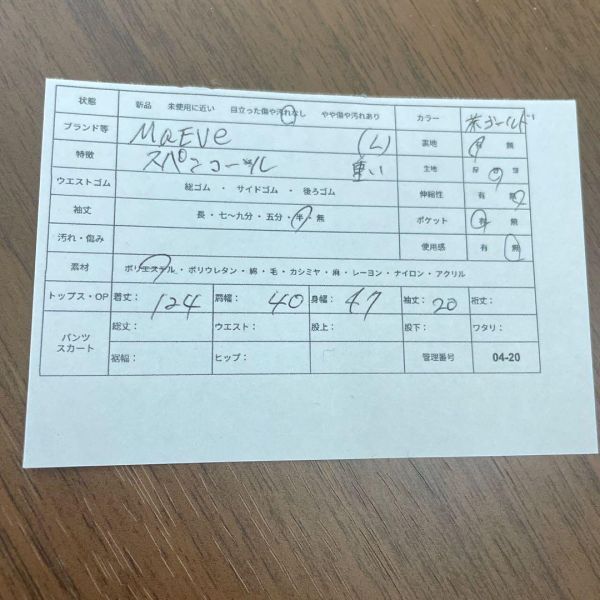 状態 新品 未使用に近い 目立った傷や汚れなし やや傷や汚れあり カラー 茶ゴールド
ブランド等 MaEVe (L) 裏地 有 無
特徴 スパンコール 重い 生地 厚 薄
ウエストゴム 総ゴム ・ サイドゴム ・ 後ろゴム 伸縮性 有 無
袖丈 長・七〜九分・五分・半・無 ポケット 有 無
汚れ・傷み 使用感 有 無
素材 ポリエステル・ポリウレタン・綿・毛・カシミヤ・麻・レーヨン・ナイロン・アクリル
トップス・OP 着丈: 124 肩幅: 40 身幅: 47 袖丈: 20 裄丈:
パンツ スカート 総丈: ウエスト: 股上: 股下: ワタリ:
裾幅: ヒップ: 管理番号 04-20